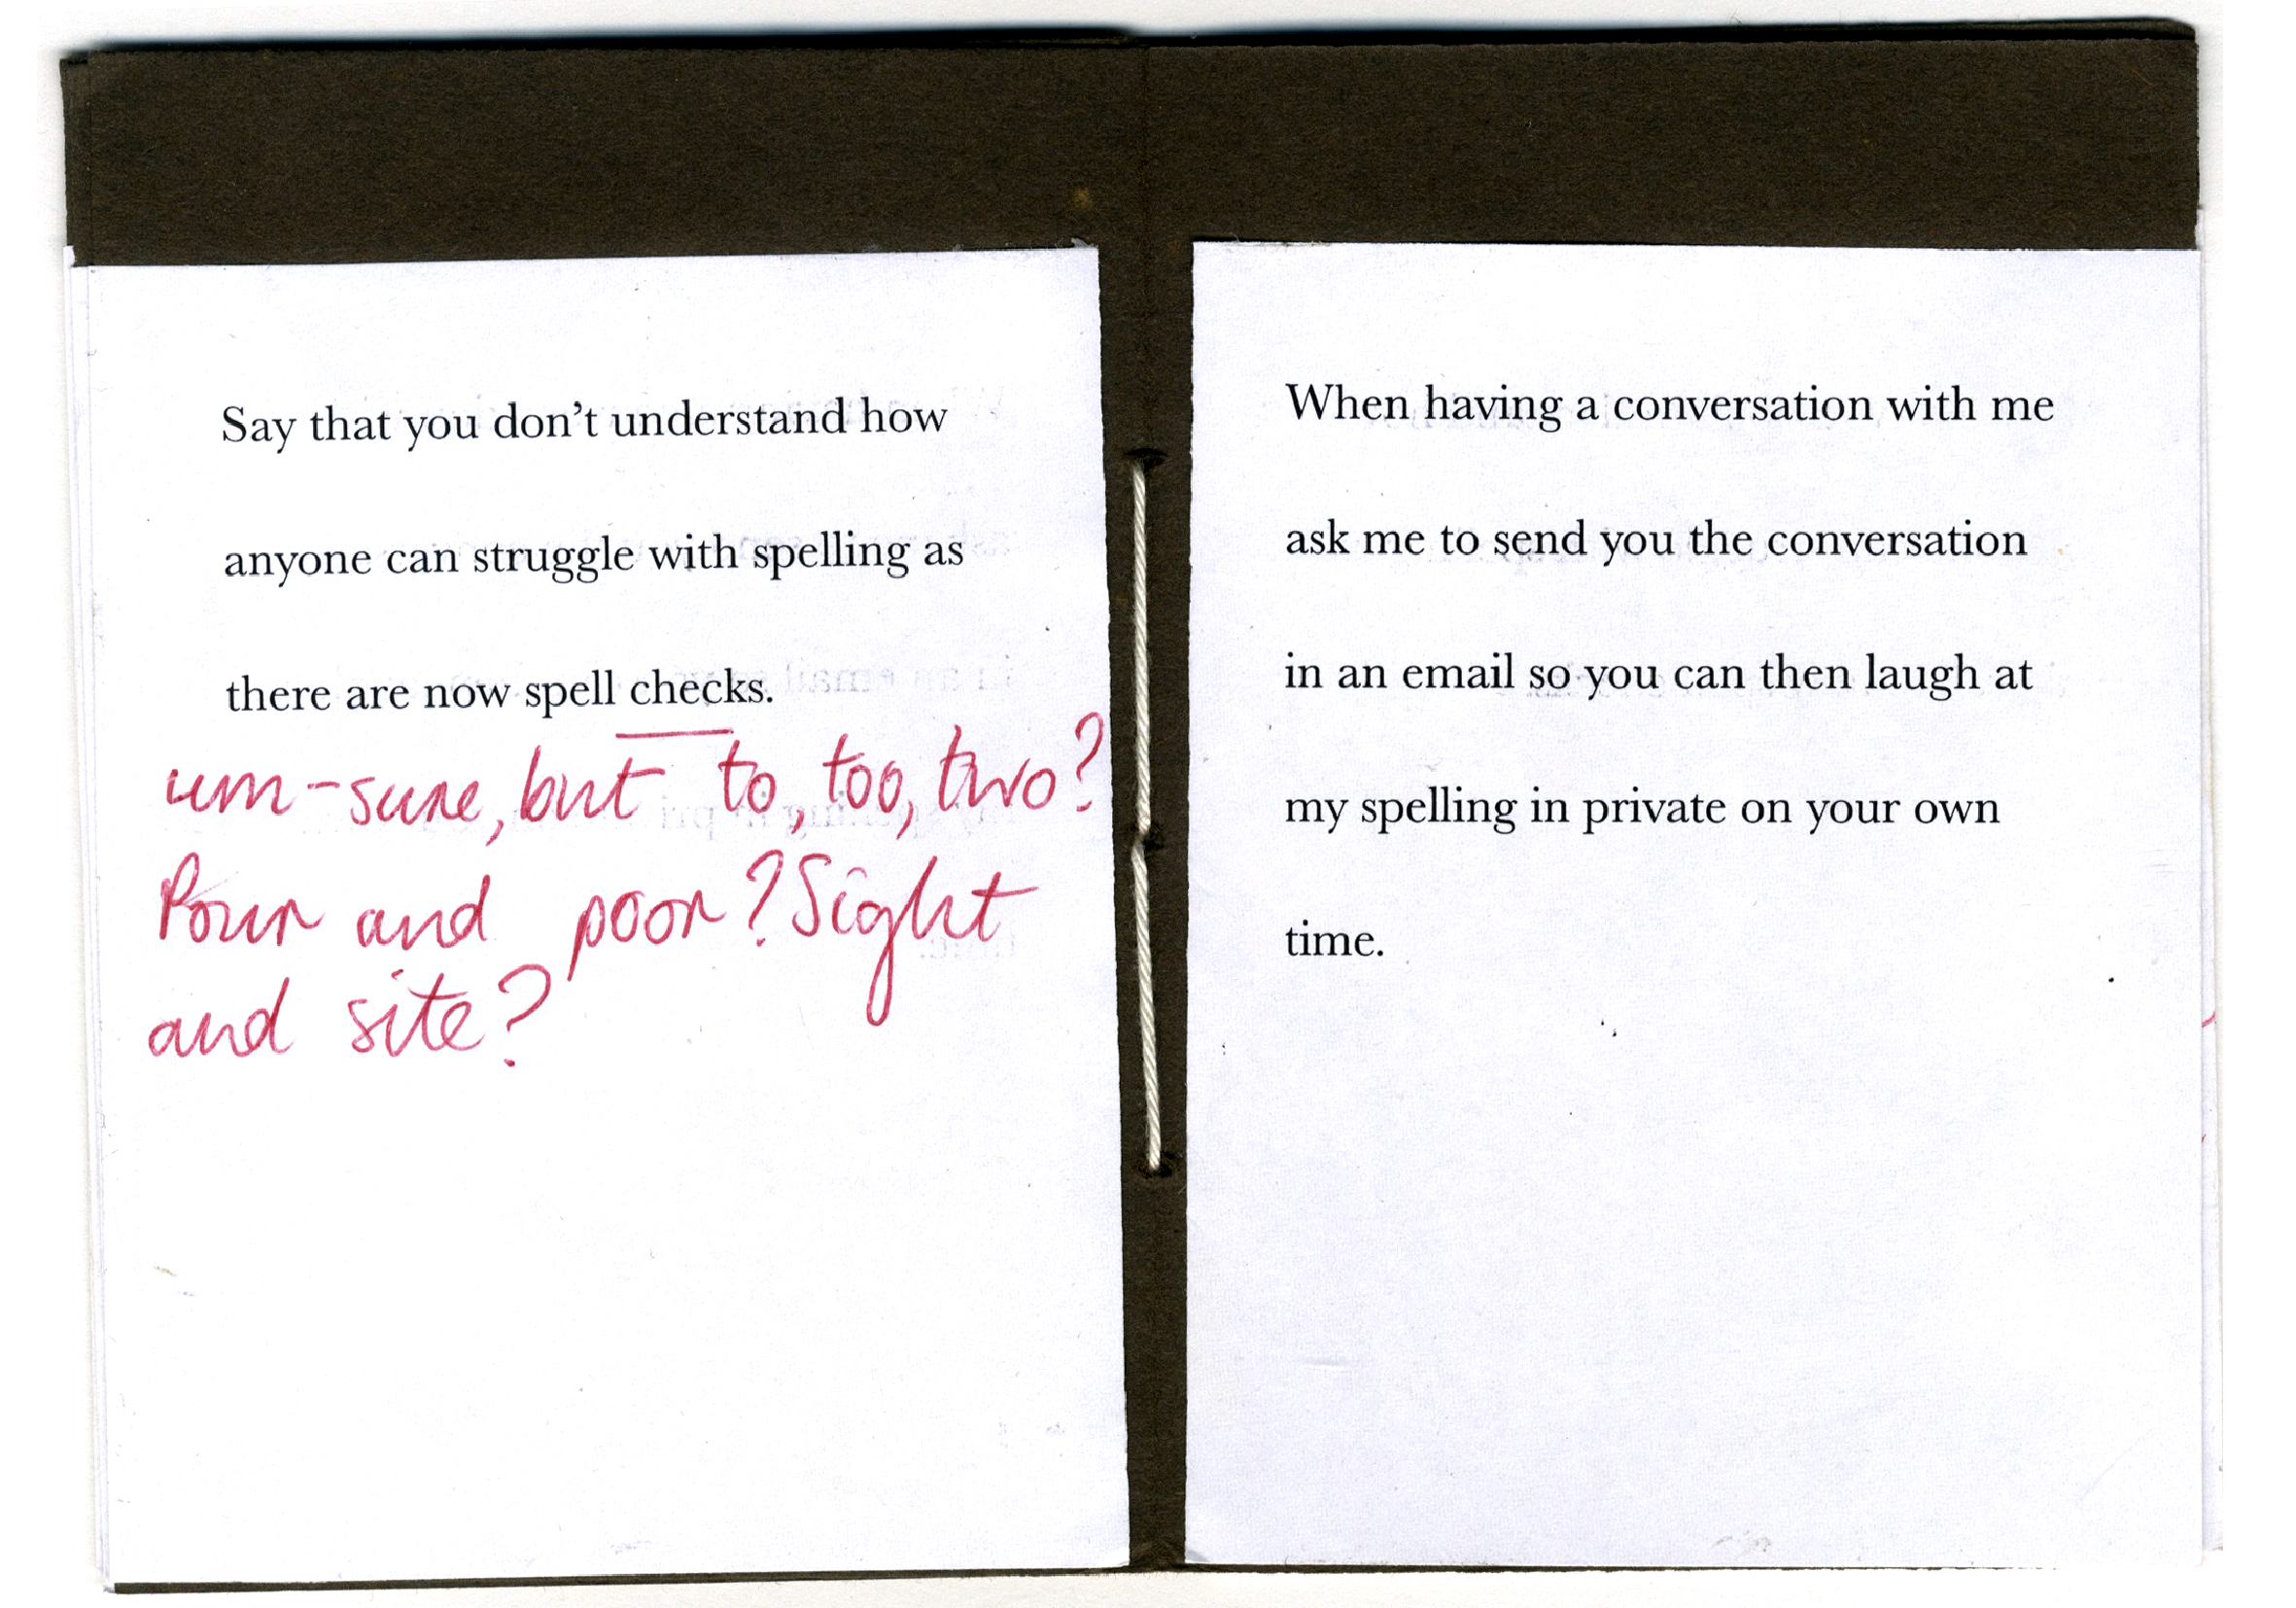 Say that you don't understand how
anyone can struggle with spelling as
there are now spell checks.
um-sure, but to, too, two?
Pour and poor? Sight
and site?
When having a conversation with me
ask me to send you the conversation
in an email so you can then laugh at
my spelling in private on your own
time.